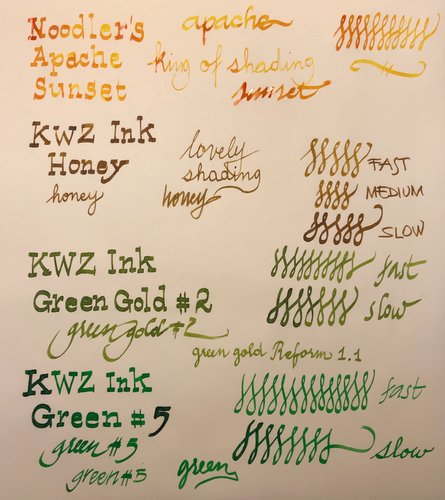 Noodler's
Apache
Sunset
apache
king of shading
sunset
KWZ Ink
Honey
honey
lovely
shading
honey
FAST
MEDIUM
SLOW
KWZ Ink
Green Gold #2
green gold #2
fast
slow
green gold Reform 1.1
KWZ Ink
Green #5
green #5
green #5
green
fast
slow